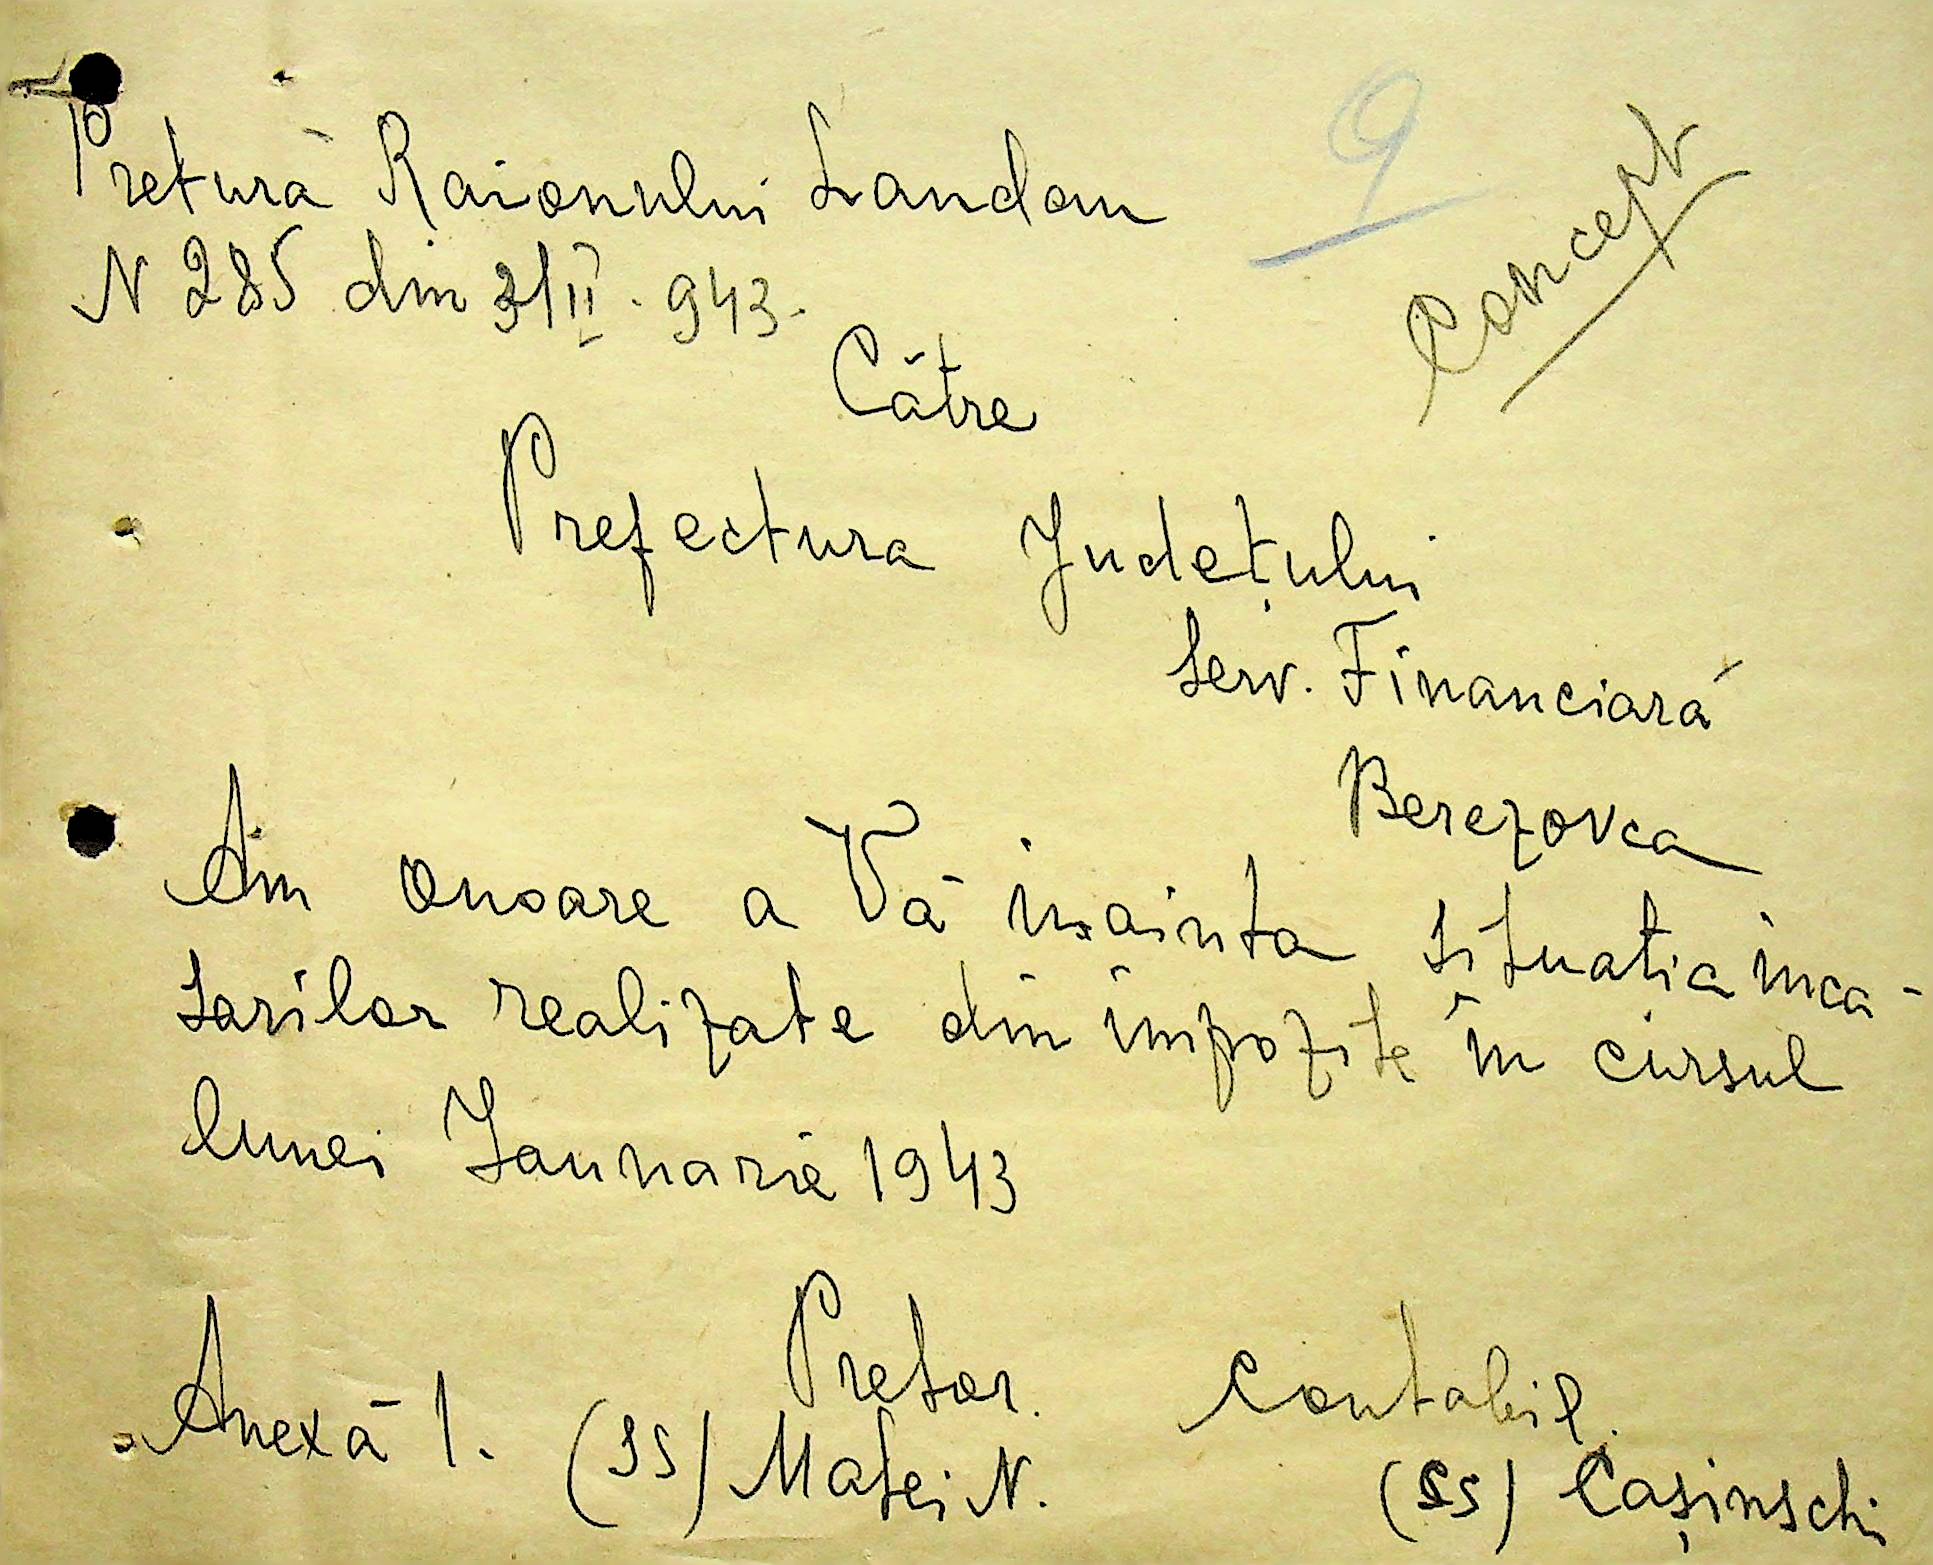 9
Concept
Pretură Raionului Landau
N 285 din 3/II. 943.
Către
Prefectura Județului
Serv. Financiară
Berezovca
Am onoare a Vă înainta situatia inca-
sarilor realizate din impozite în cursul
lunei Ianuarie 1943
Pretor. Contabil.
Anexă 1. (ss) Matei N. (ss) Cașinschi